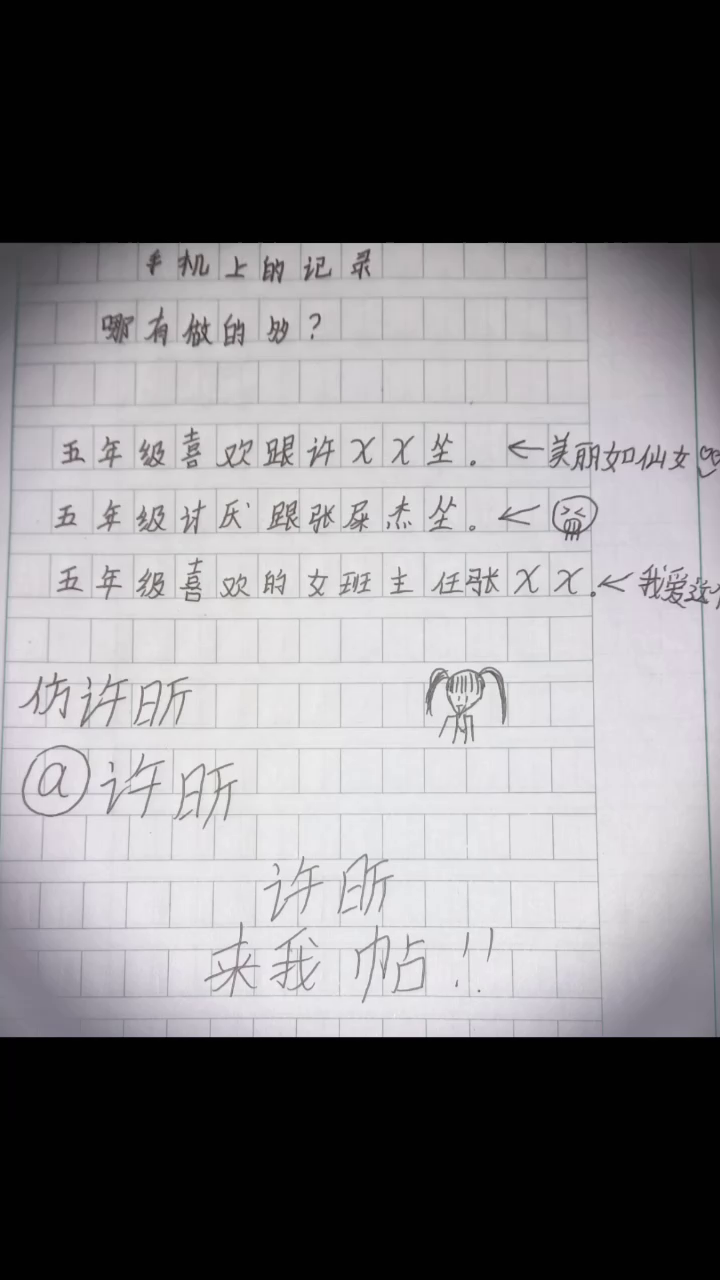 手机上的记录
哪有做的妙？
五年级喜欢跟许XX坐。←美丽如仙女
五年级讨厌跟张屎杰坐。←
五年级喜欢的女班主任张XX.←我爱这
仿许昕
@许昕
许昕
来我帖!!